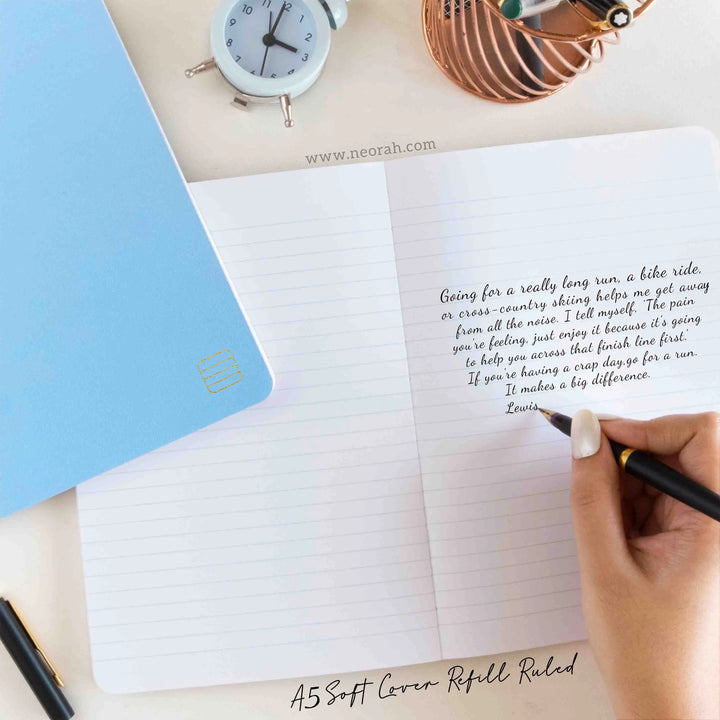 www.neorah.com
Going for a really long run, a bike ride,
or cross-country skiing helps me get away
from all the noise. I tell myself, 'The pain
you're feeling, just enjoy it because it's going
to help you across that finish line first.'
If you're having a crap day,go for a run.
It makes a big difference.
Lewis
A5 Soft Cover Refill Ruled